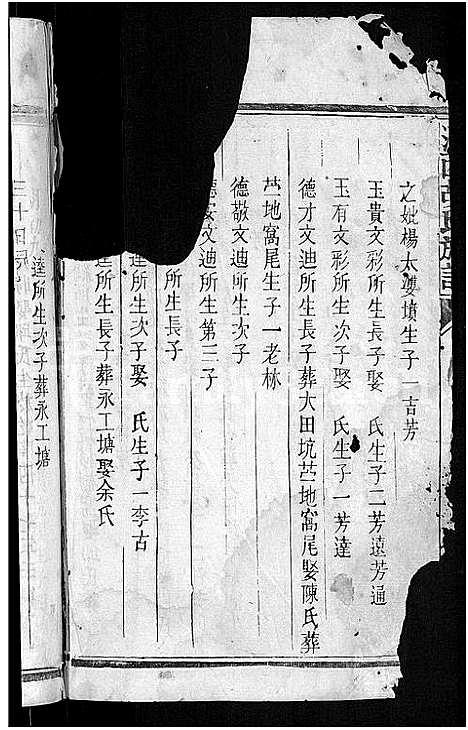 之妣楊太孺墳生子一吉芳
玉貴文彩所生長子娶 氏生子二芳遠芳通
玉有文彩所生次子娶 氏生子一芳達
德才文迪所生長子葬大田坑苎地窩尾娶陳氏葬
苎地窩尾生子一老林
德敬文迪所生次子
德安文迪所生第三子
所生長子
達所生次子娶 氏生子一李古
達所生長子葬永工塘娶余氏
達所生次子葬永工塘
三十日
氏族譜